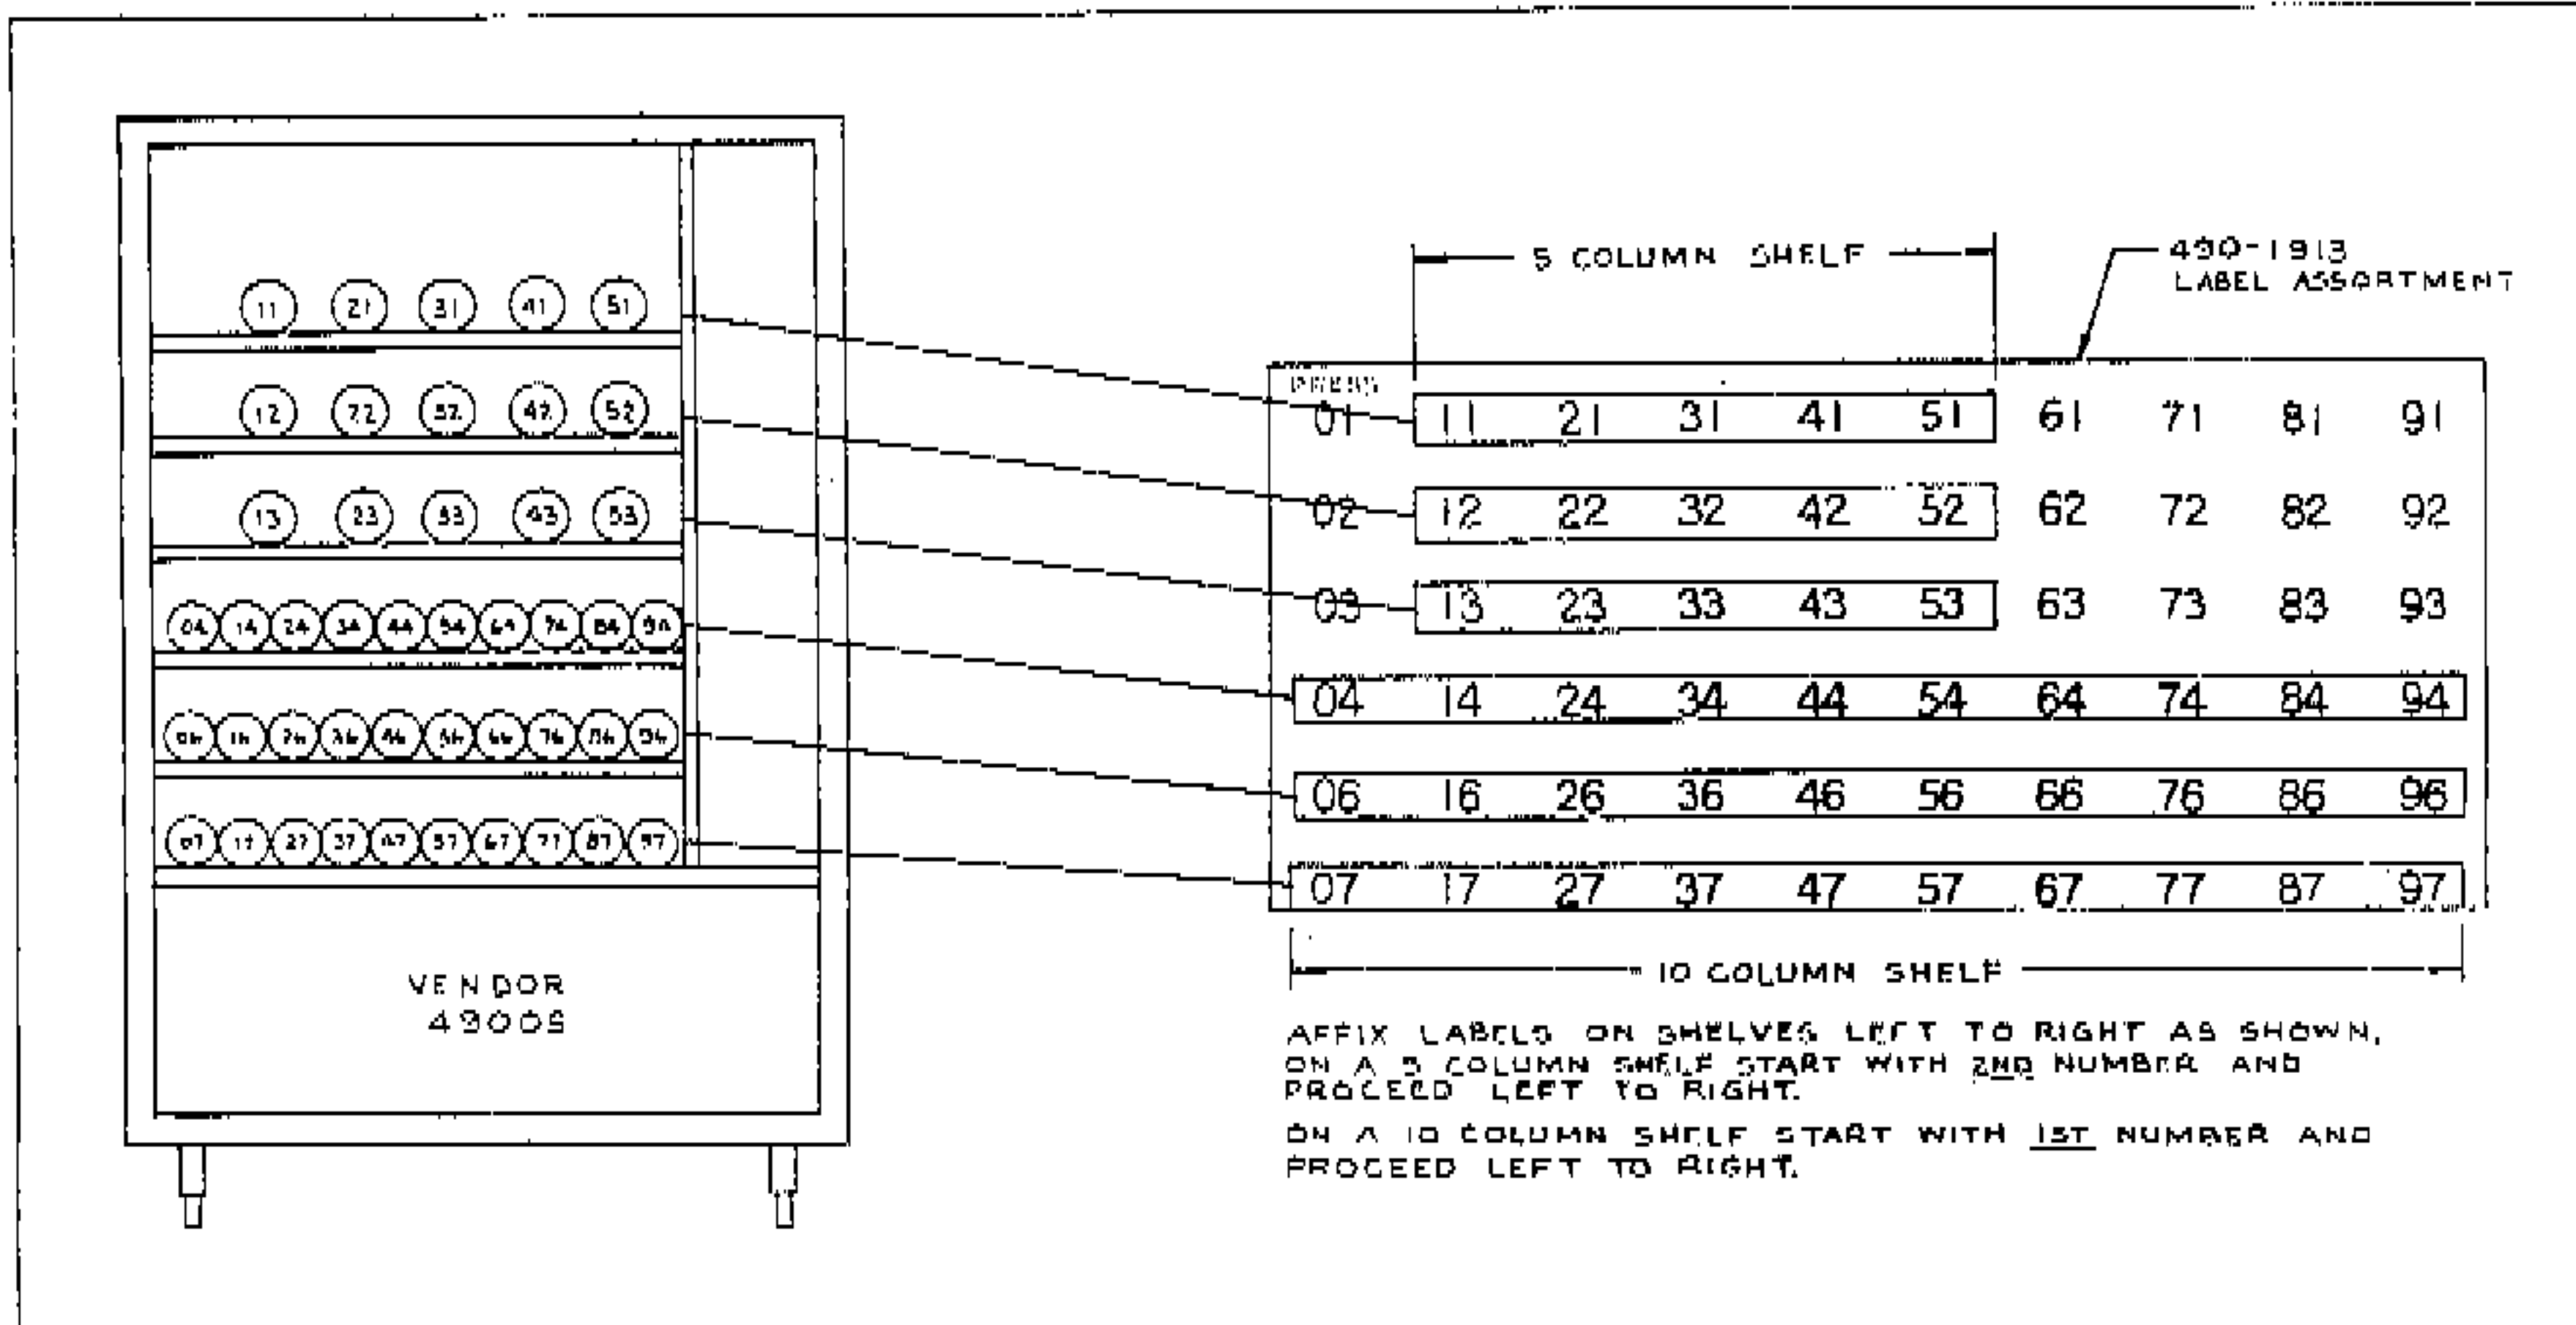 5 COLUMN SHELF
490-1913
LABEL ASSORTMENT
11 21 31 41 51
12 22 32 42 52
13 23 33 43 53
04 14 24 34 44 54 64 74 84 94
06 16 26 36 46 56 66 76 86 96
07 17 27 37 47 57 67 77 87 97
VENDOR
4900S
01 11 21 31 41 51 61 71 81 91
02 12 22 32 42 52 62 72 82 92
03 13 23 33 43 53 63 73 83 93
04 14 24 34 44 54 64 74 84 94
06 16 26 36 46 56 66 76 86 96
07 17 27 37 47 57 67 77 87 97
10 COLUMN SHELF
AFFIX LABELS ON SHELVES LEFT TO RIGHT AS SHOWN,
ON A 5 COLUMN SHELF START WITH 2ND NUMBER AND
PROCEED LEFT TO RIGHT.
ON A 10 COLUMN SHELF START WITH 1ST NUMBER AND
PROCEED LEFT TO RIGHT.